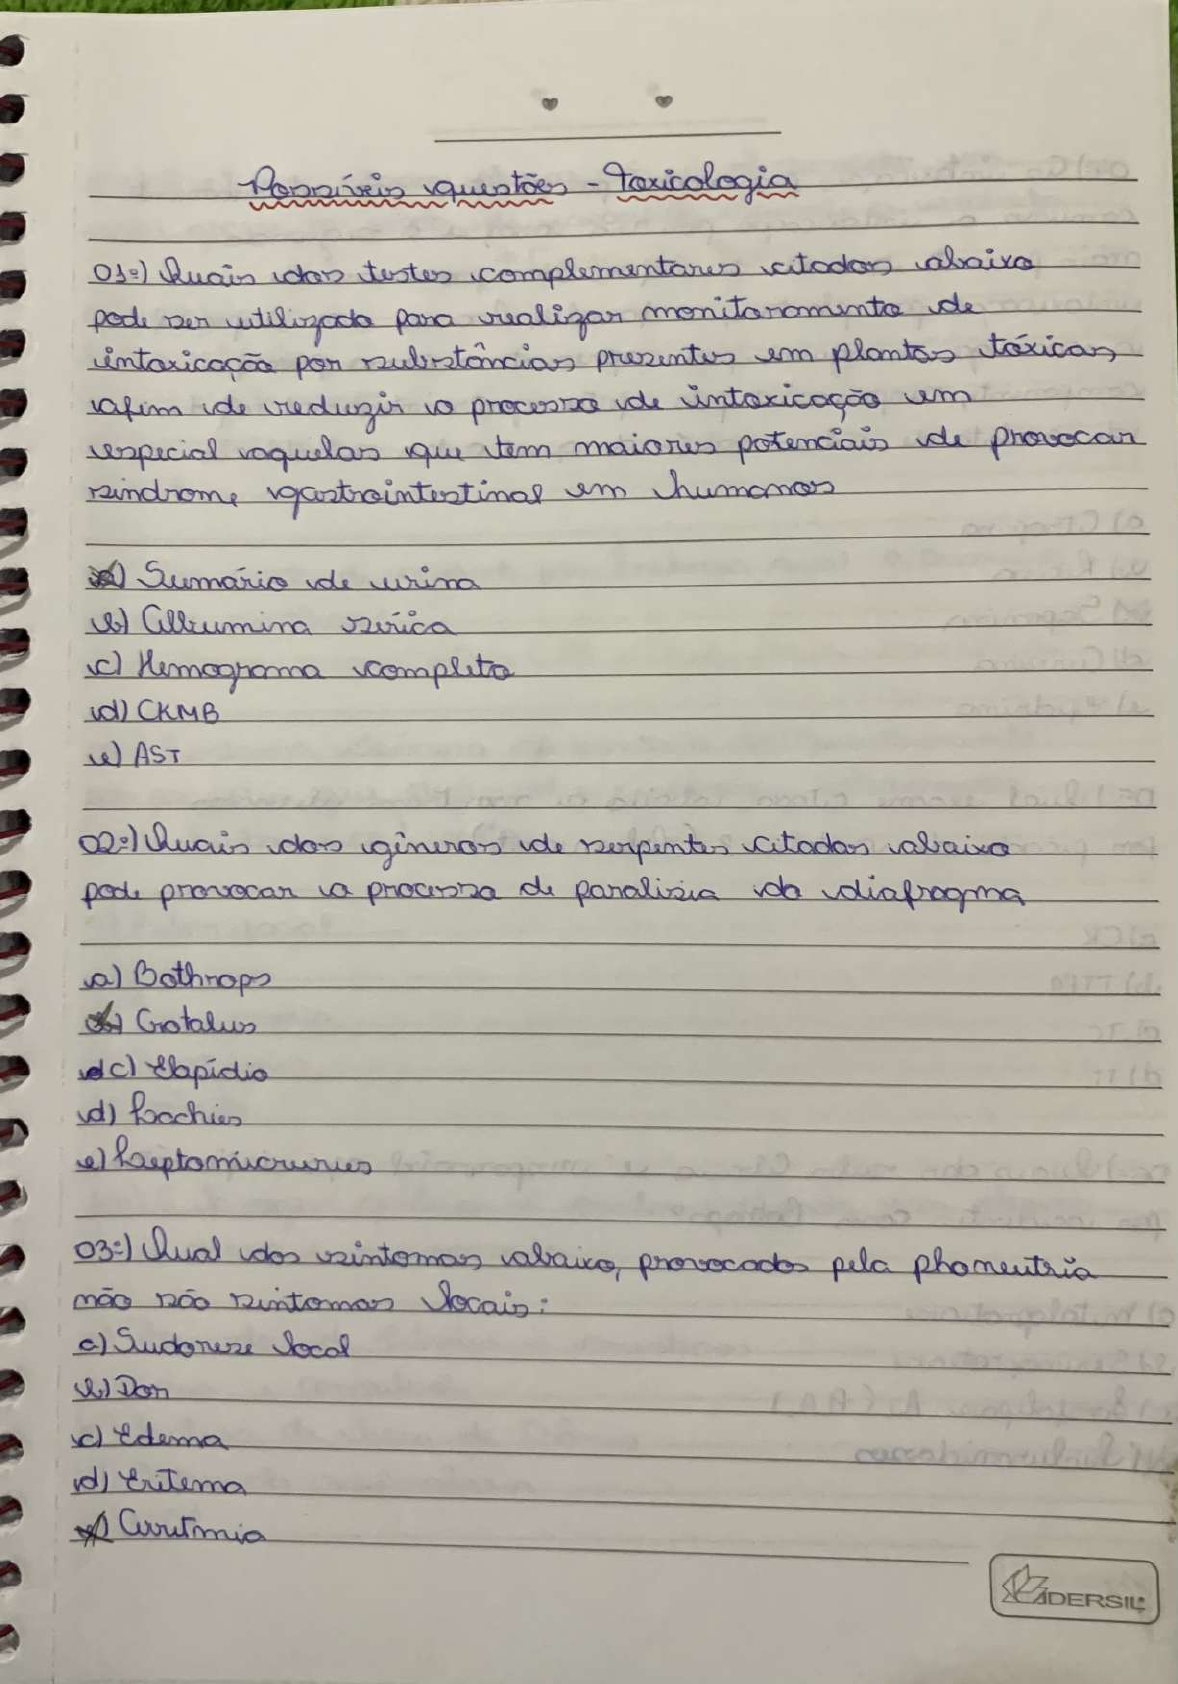 Possíveis questões - Toxicologia
01º) Quais dos testes complementares citados abaixo
pode ser utilizado para realizar monitoramento de
intoxicação por substâncias presentes em plantas tóxicas,
afim de reduzir o processo de intoxicação em
especial aquelas que tem maiores potenciais de provocar
síndrome gastrointestinal em humanos
a) Sumário de urina
b) Albumina sérica
c) Hemograma completo
d) CKMB
e) AST
02º) Quais dos gêneros de serpentes citados abaixo
pode provocar o processo de paralisia do diafragma
a) Bothrops
b) Crotalus
c) Elapídio
d) Lachies
e) Leptomicrurus
03º) Qual dos sintomas abaixo, provocados pela phoneutria
não são sintomas locais:
a) Sudorese local
b) Dor
c) Edema
d) Eritema
e) Arritmia
ADERSIL